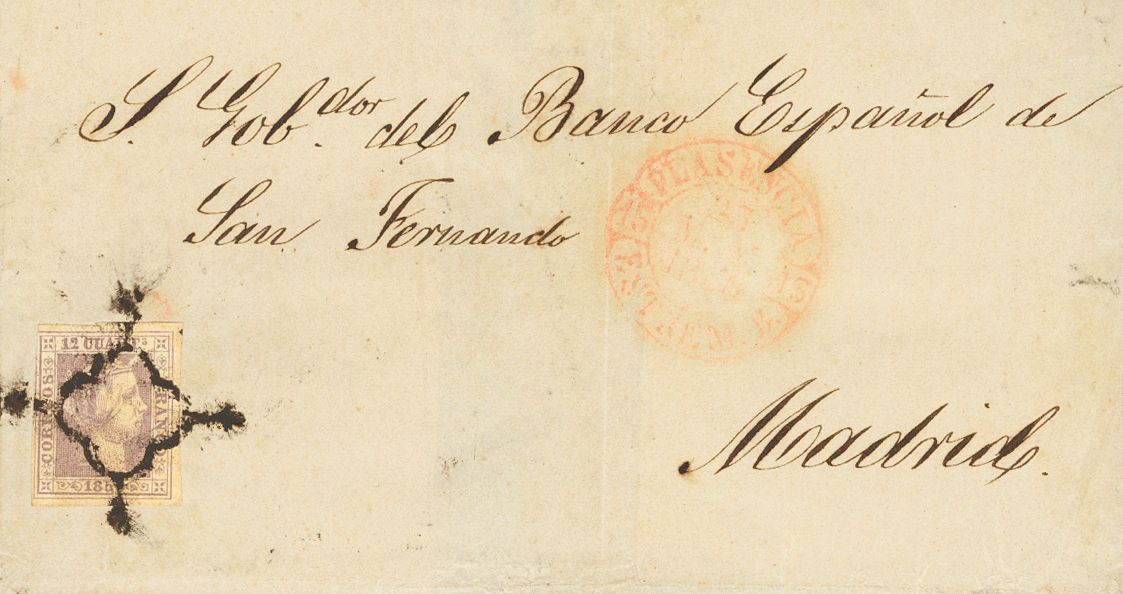 S. Gob.dor del Banco Español de
San Fernando
PLASENCIA
EXTREM. B.
12 CUART.s
CORREOS
FRAN
185
Madrid.